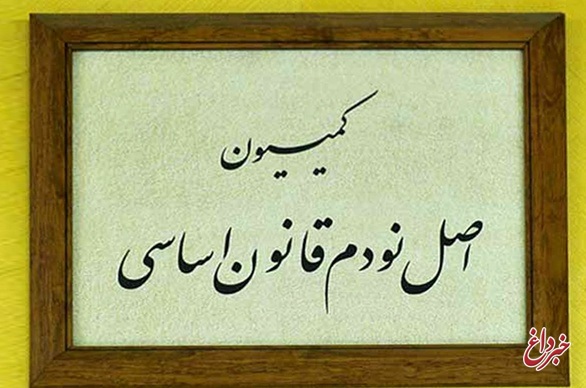 کمیسیون
اصل نودم قانون اساسی
خبرداغ